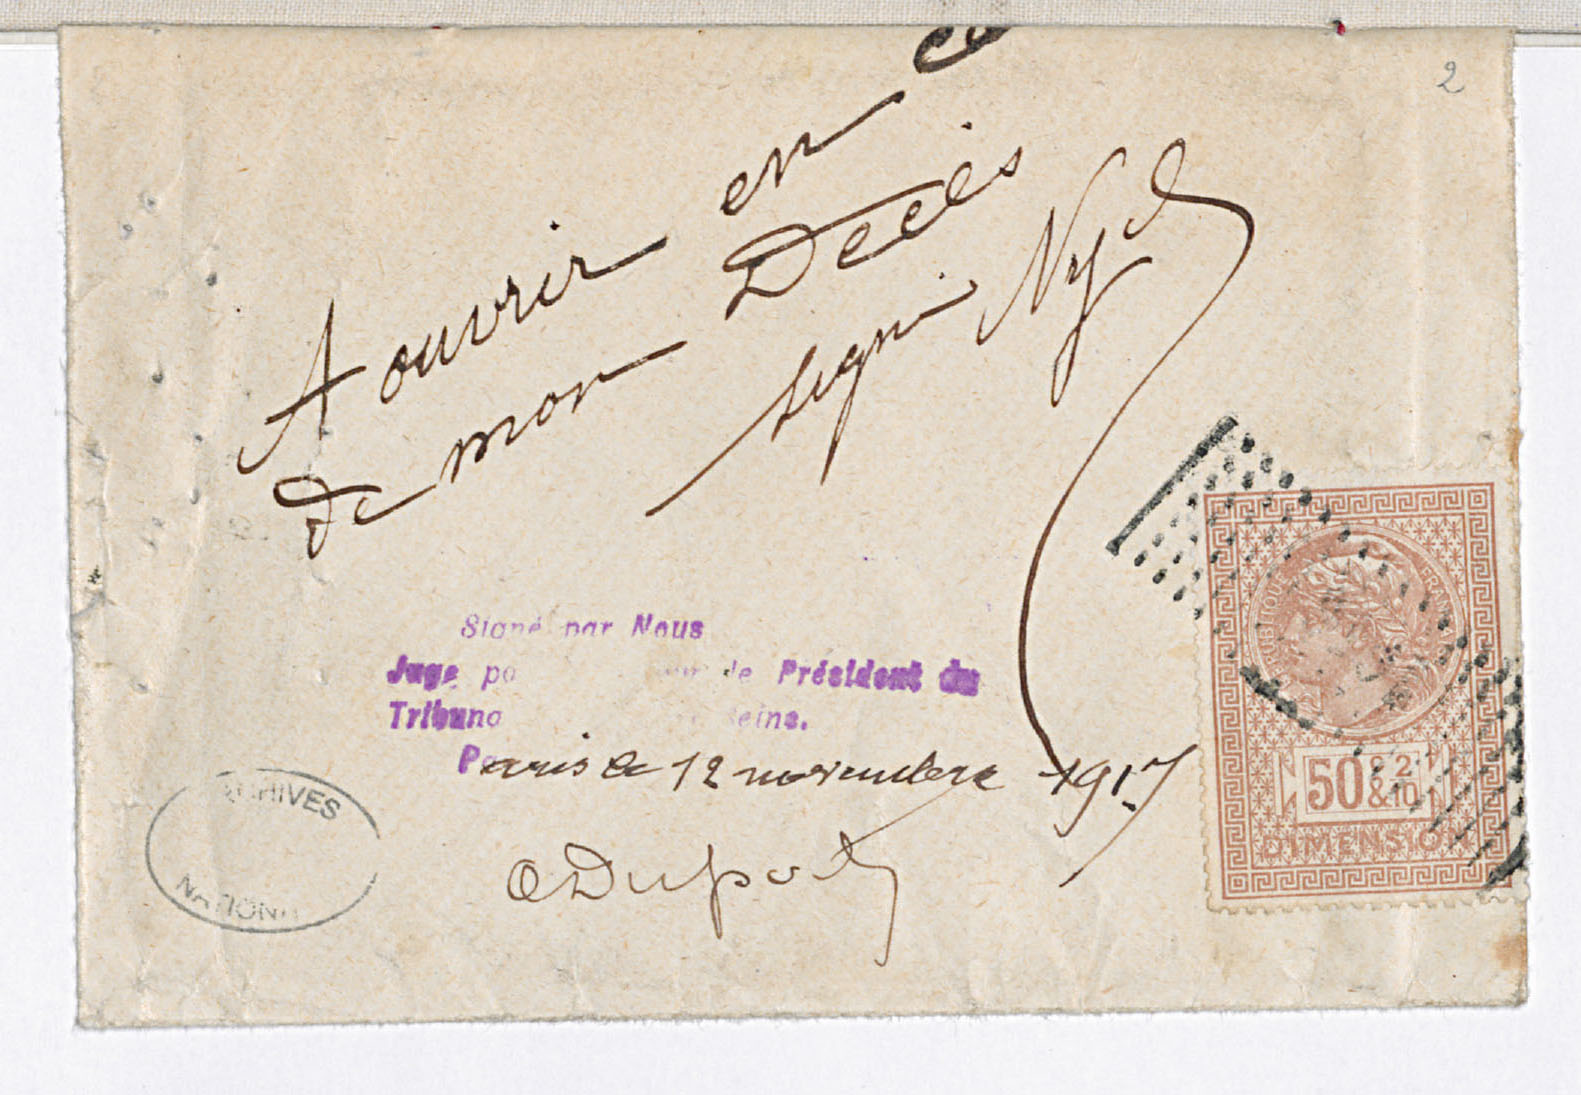 2
A ouvrir en
de mon Décès
signé
Signé par Nous
Juge de Président du
Tribuna Seine.
Paris le 12 novembre 1917
ARCHIVES
NATION
RÉPUBLIQUE FRANÇA
50 c 2
& 10
DIMENSION